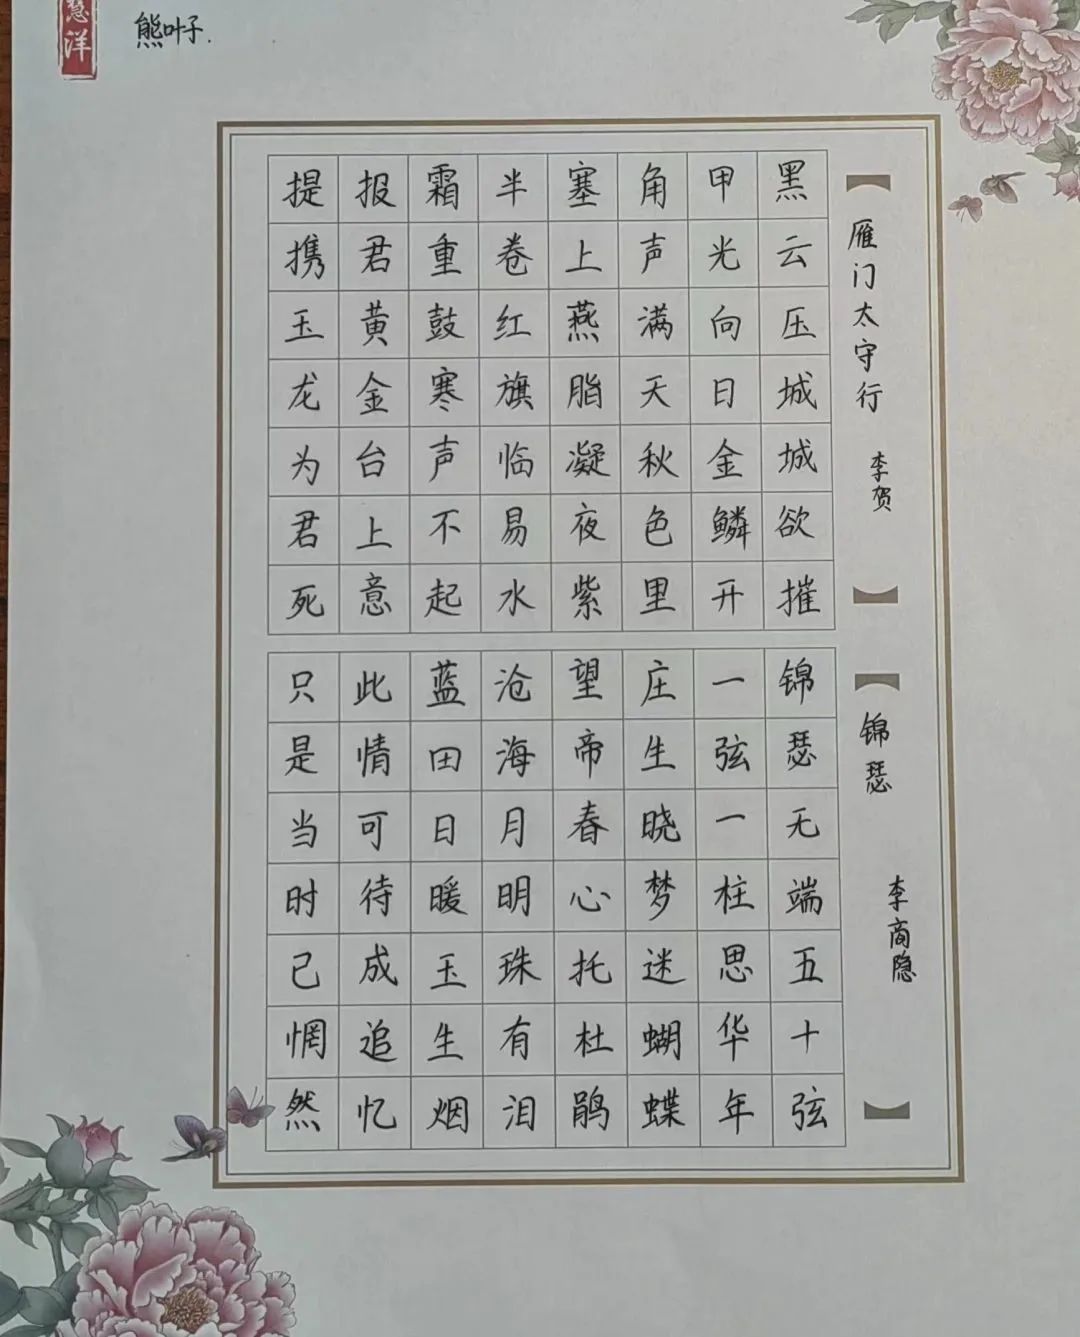 慧洋
熊叶子.
雁门太守行
李贺
黑云压城城欲摧
甲光向日金鳞开
角声满天秋色里
塞上燕脂凝夜紫
半卷红旗临易水
霜重鼓寒声不起
报君黄金台上意
提携玉龙为君死
锦瑟
李商隐
锦瑟无端五十弦
一弦一柱思华年
庄生晓梦迷蝴蝶
望帝春心托杜鹃
沧海月明珠有泪
蓝田日暖玉生烟
此情可待成追忆
只是当时已惘然